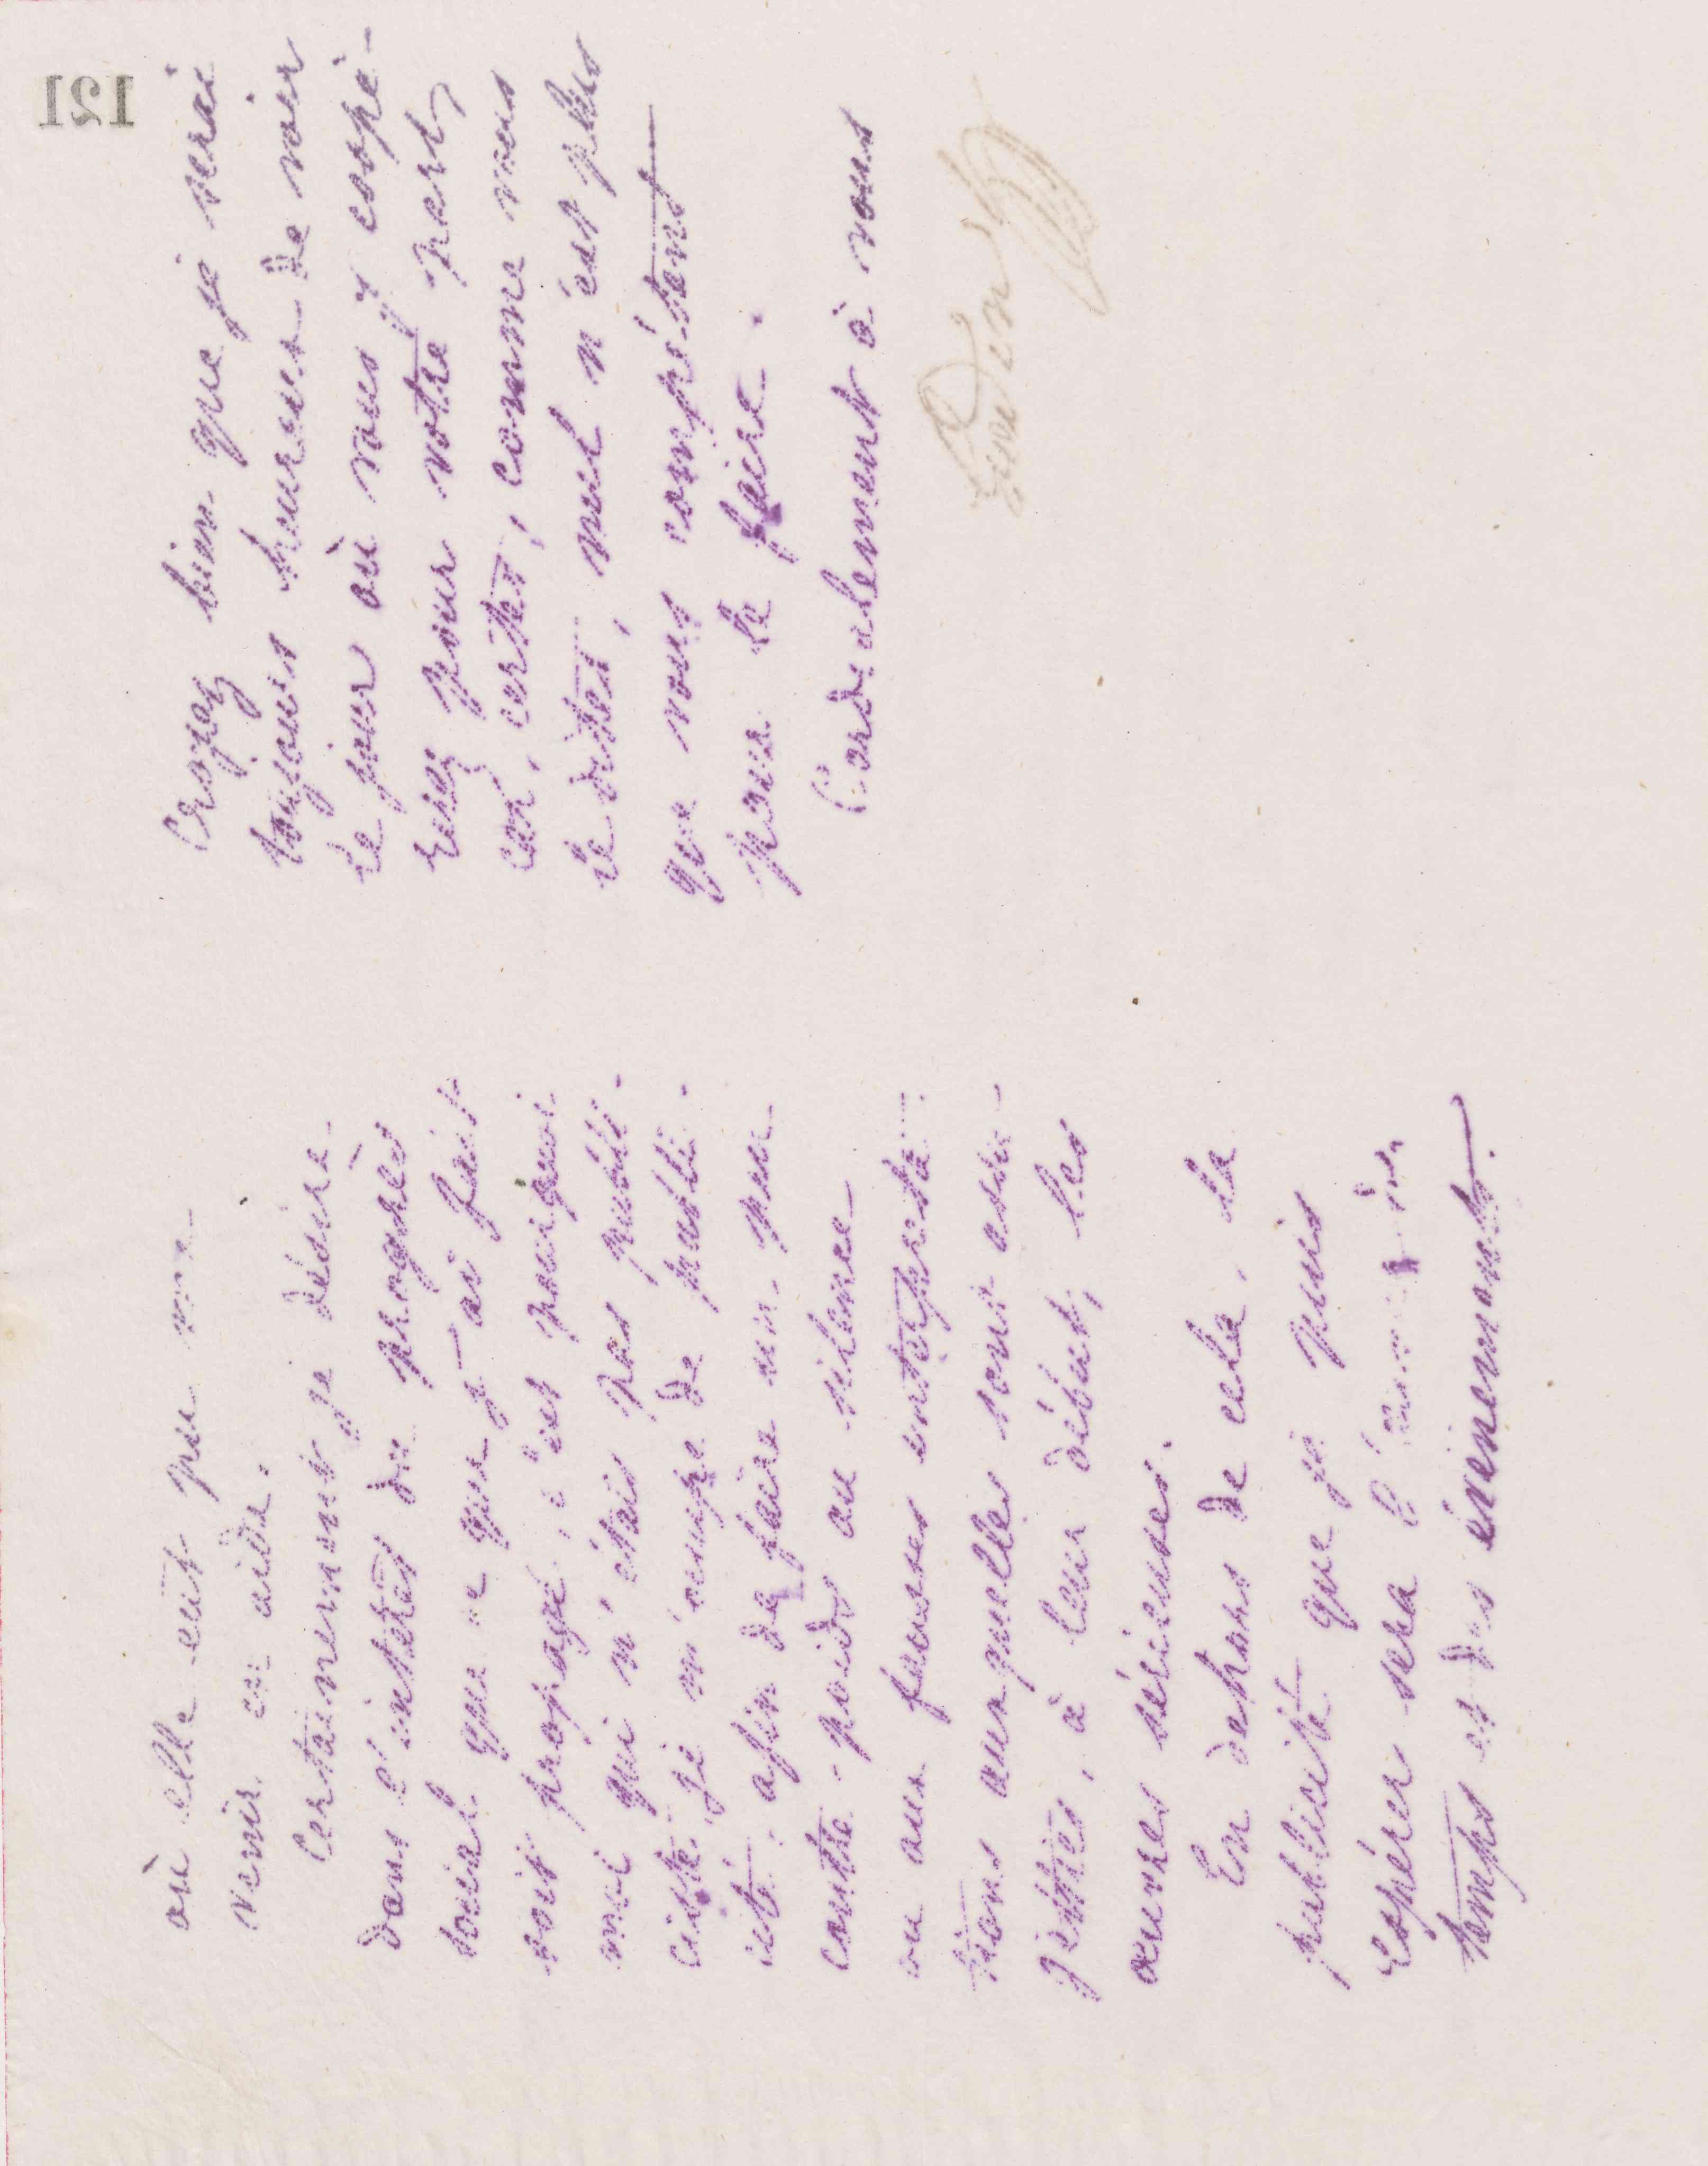 où elle eût pu me
venir en aide.
Certainement je désire
dans l'intérêt du progrès
social que ce que j'ai fait
soit propagé, c'est pourquoi
moi qui n'étais pas publi-
ciste, je m'occupe de publi-
cité : afin de faire un peu
contre-poids au silence
ou aux fausses interpréta-
tions auxquelles sont assu-
jetties, à leur début, les
œuvres sérieuses.
En dehors de cela, la
publicité que je puis
espérer sera l'œuvre du
temps et des événements.
Croyez bien que je serai
toujours heureux de voir
le jour où vous y coopé-
rerez pour votre part,
car, certes, comme vous
le dites, nul n'est plus
que vous compétent
pour le faire.
Cordialement à vous
Godin
121